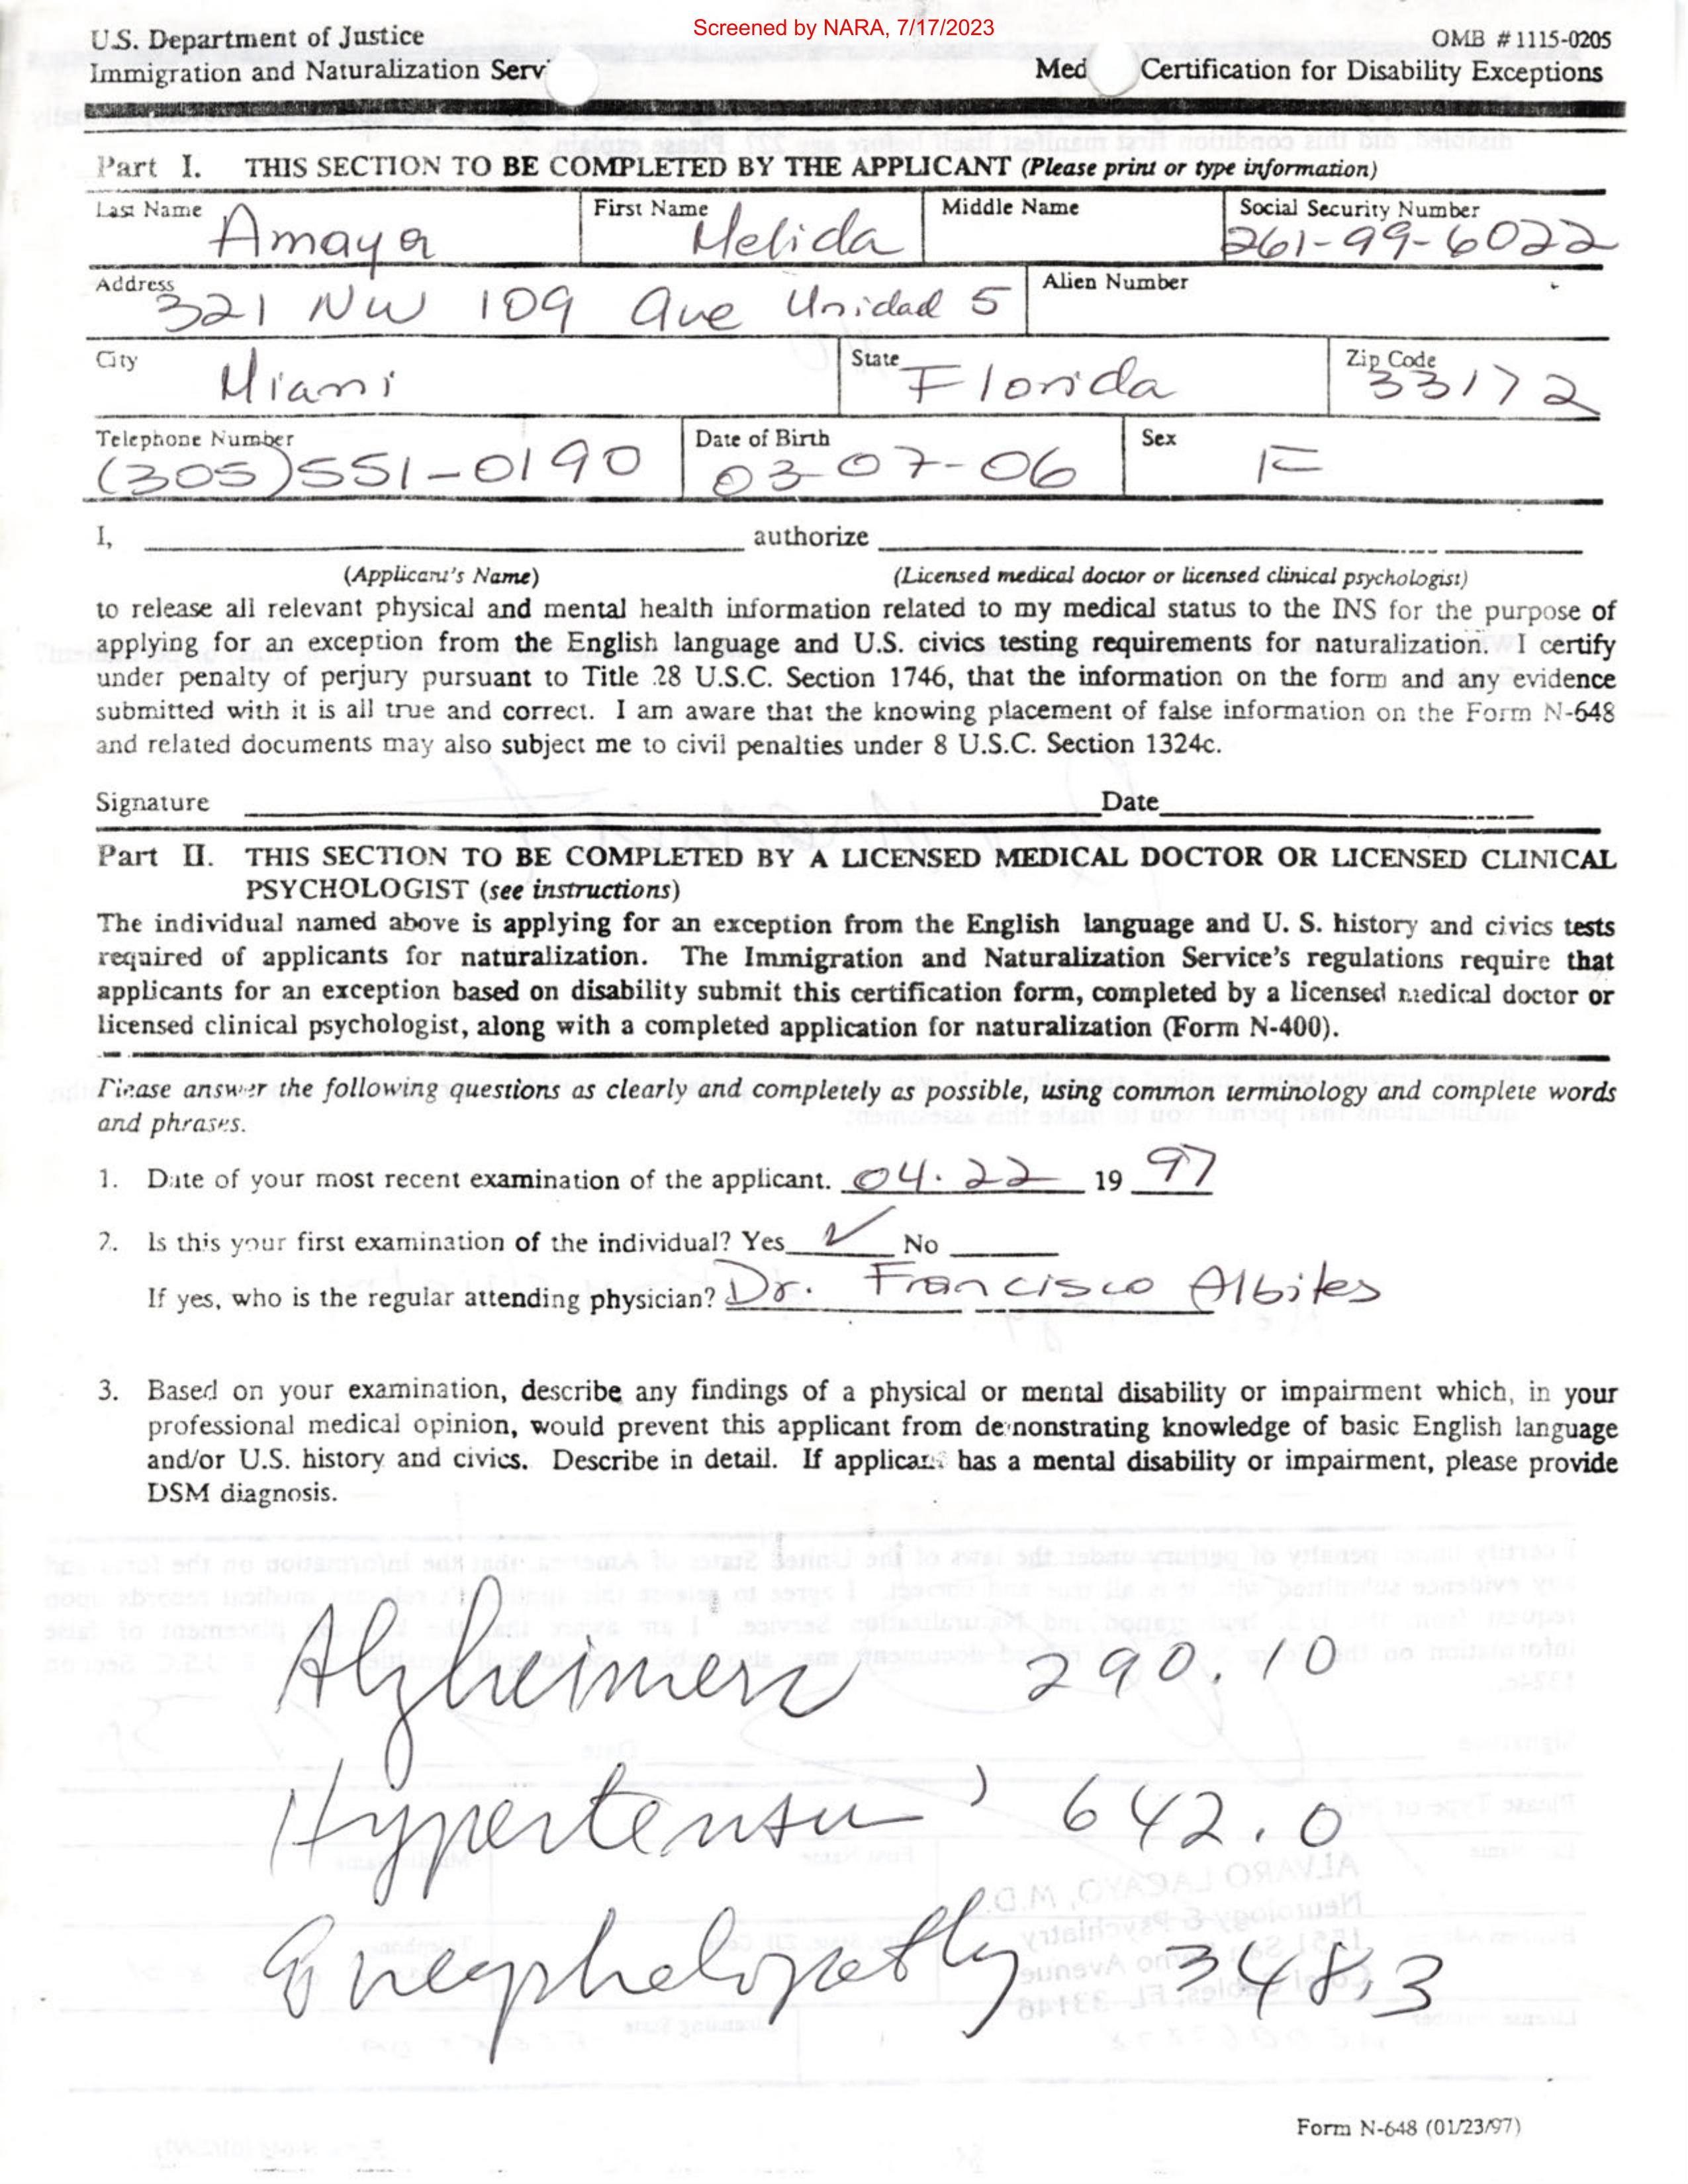 Screened by NARA, 7/17/2023
U.S. Department of Justice
OMB # 1115-0205
Immigration and Naturalization Serv
Med Certification for Disability Exceptions
Part I. THIS SECTION TO BE COMPLETED BY THE APPLICANT (Please print or type information)
Last Name Amaya First Name Melida Middle Name Social Security Number 261-99-6022
Address 321 NW 109 Ave Unidad 5 Alien Number
City Miami State Florida Zip Code 33172
Telephone Number (305)551-0190 Date of Birth 03-07-06 Sex F
I, authorize
(Applicant's Name) (Licensed medical doctor or licensed clinical psychologist)
to release all relevant physical and mental health information related to my medical status to the INS for the purpose of
applying for an exception from the English language and U.S. civics testing requirements for naturalization. I certify
under penalty of perjury pursuant to Title 28 U.S.C. Section 1746, that the information on the form and any evidence
submitted with it is all true and correct. I am aware that the knowing placement of false information on the Form N-648
and related documents may also subject me to civil penalties under 8 U.S.C. Section 1324c.
Signature Date
Part II. THIS SECTION TO BE COMPLETED BY A LICENSED MEDICAL DOCTOR OR LICENSED CLINICAL
PSYCHOLOGIST (see instructions)
The individual named above is applying for an exception from the English language and U. S. history and civics tests
required of applicants for naturalization. The Immigration and Naturalization Service's regulations require that
applicants for an exception based on disability submit this certification form, completed by a licensed medical doctor or
licensed clinical psychologist, along with a completed application for naturalization (Form N-400).
Please answer the following questions as clearly and completely as possible, using common terminology and complete words
and phrases.
1. Date of your most recent examination of the applicant. 04.22 19 97
2. Is this your first examination of the individual? Yes ✓ No
If yes, who is the regular attending physician? Dr. Francisco Albites
3. Based on your examination, describe any findings of a physical or mental disability or impairment which, in your
professional medical opinion, would prevent this applicant from demonstrating knowledge of basic English language
and/or U.S. history and civics. Describe in detail. If applicant has a mental disability or impairment, please provide
DSM diagnosis.
Alzheimers 290.10
Hypertensu 642.0
Encephelopathy 348.3
Form N-648 (01/23/97)